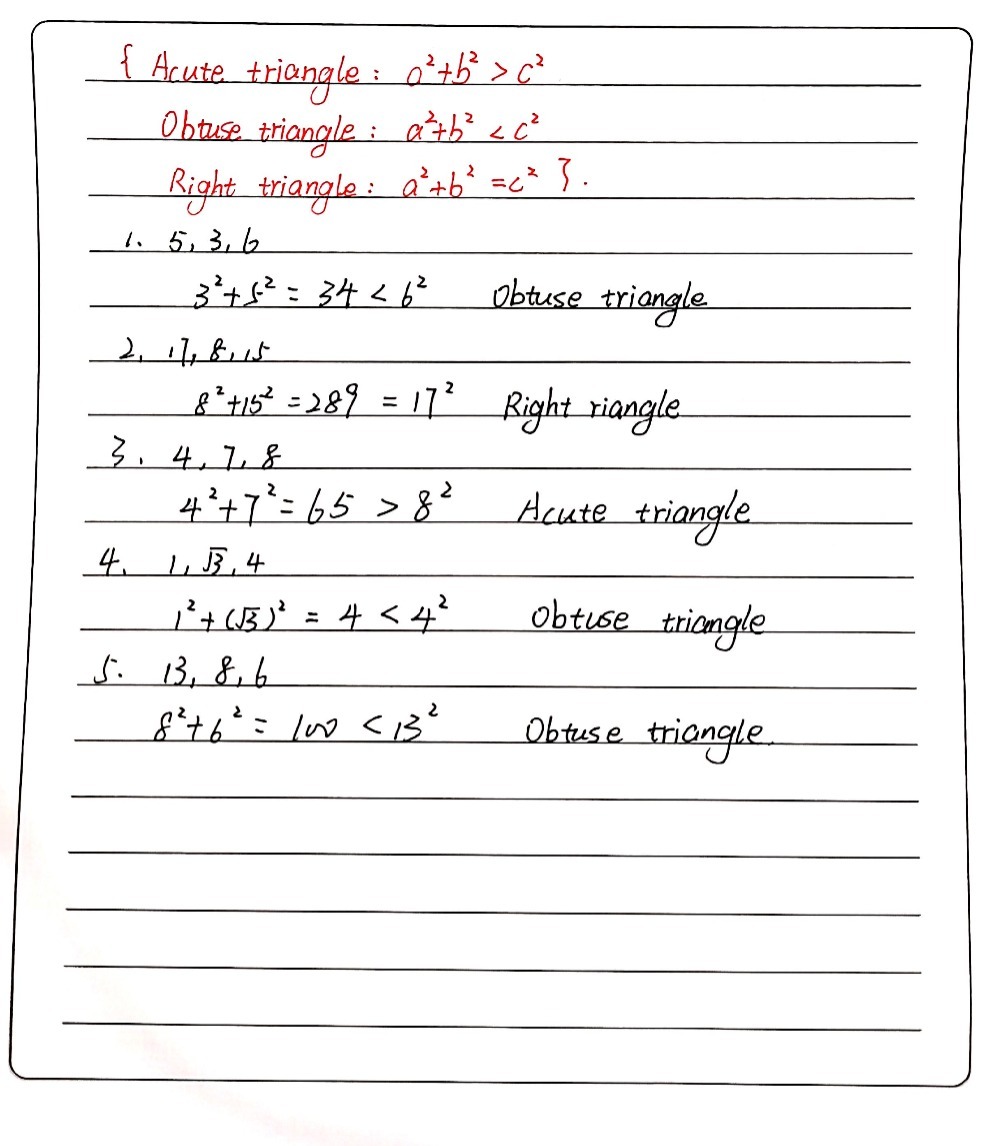 { Acute triangle : a²+b² > c²
Obtuse triangle : a²+b² < c²
Right triangle : a²+b² = c² }.
1. 5, 3, 6
3²+5² = 34 < 6² Obtuse triangle
2. 17, 8, 15
8²+15² = 289 = 17² Right riangle
3. 4, 7, 8
4²+7² = 65 > 8² Acute triangle
4. 1, √3, 4
1²+(√3)² = 4 < 4² Obtuse triangle
5. 13, 8, 6
8²+6² = 100 < 13² Obtuse triangle.